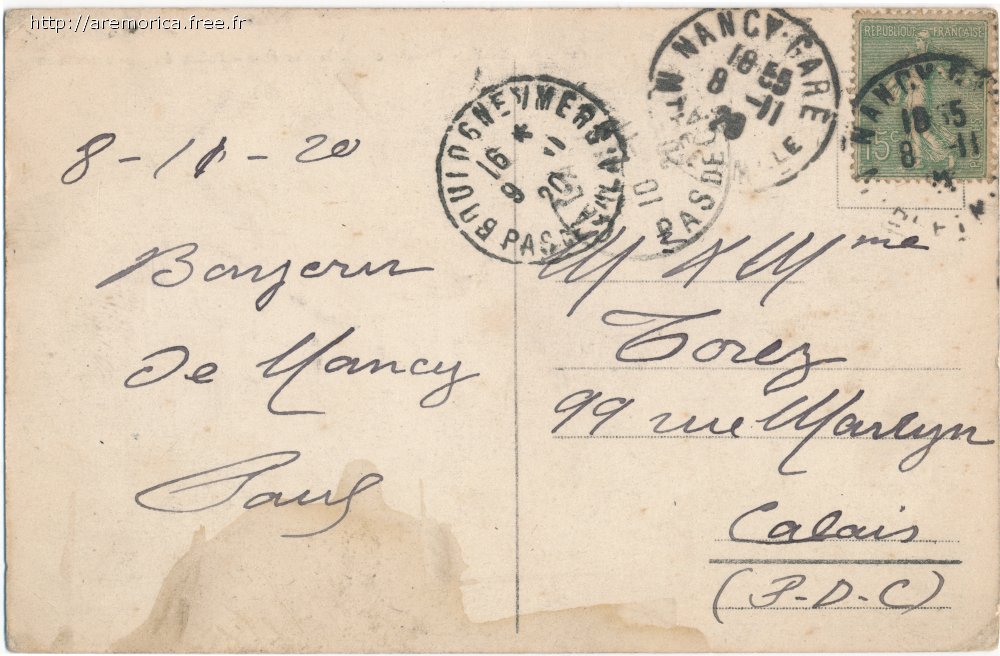 http://aremorica.free.fr
8-11-20
Bonjour
de Nancy
Paul
M & Mme
Torez
99 rue Martyn
Calais
(P-D-C)
NANCY-GARE
18 55
8 -11
20
REPUBLIQUE FRANÇAISE
15
NANCY-GARE
18 55
8 -11
16
9
20
PAS DE CALAIS
PAS DE CALAIS